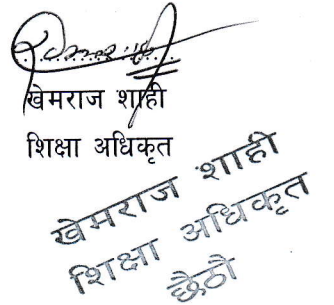 खेमराज शाही
शिक्षा अधिकृत
खेमराज शाही
शिक्षा अधिकृत
छैठौ